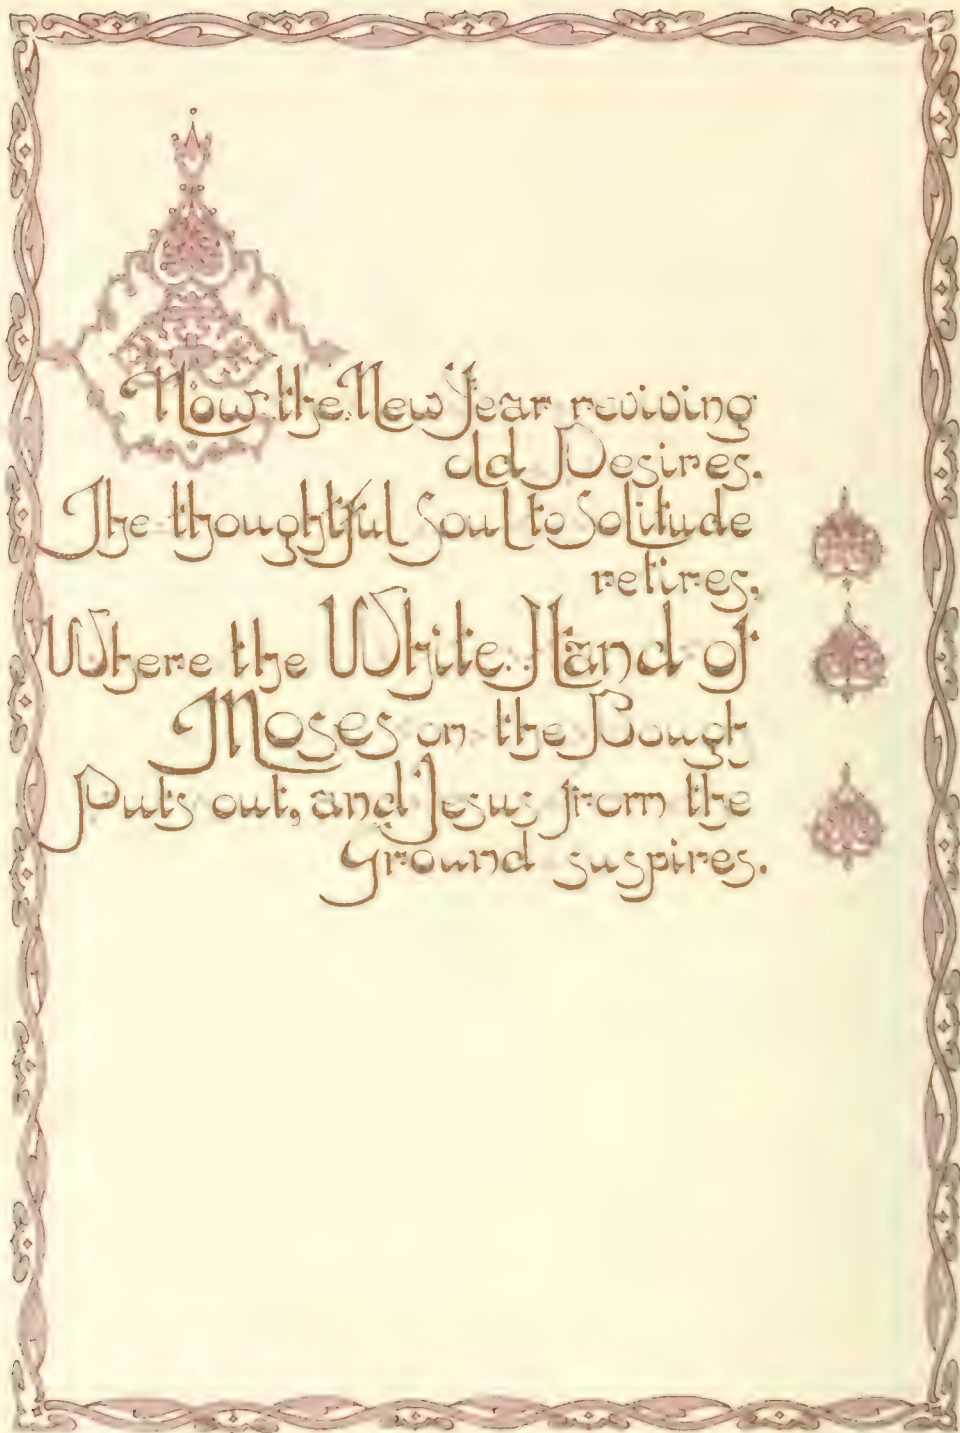 Now the New Year reviving
old Desires.
The thoughtful Soul to Solitude
retires,
Where the White Hand of
Moses on the Bough
Puts out, and Jesus from the
ground suspires.